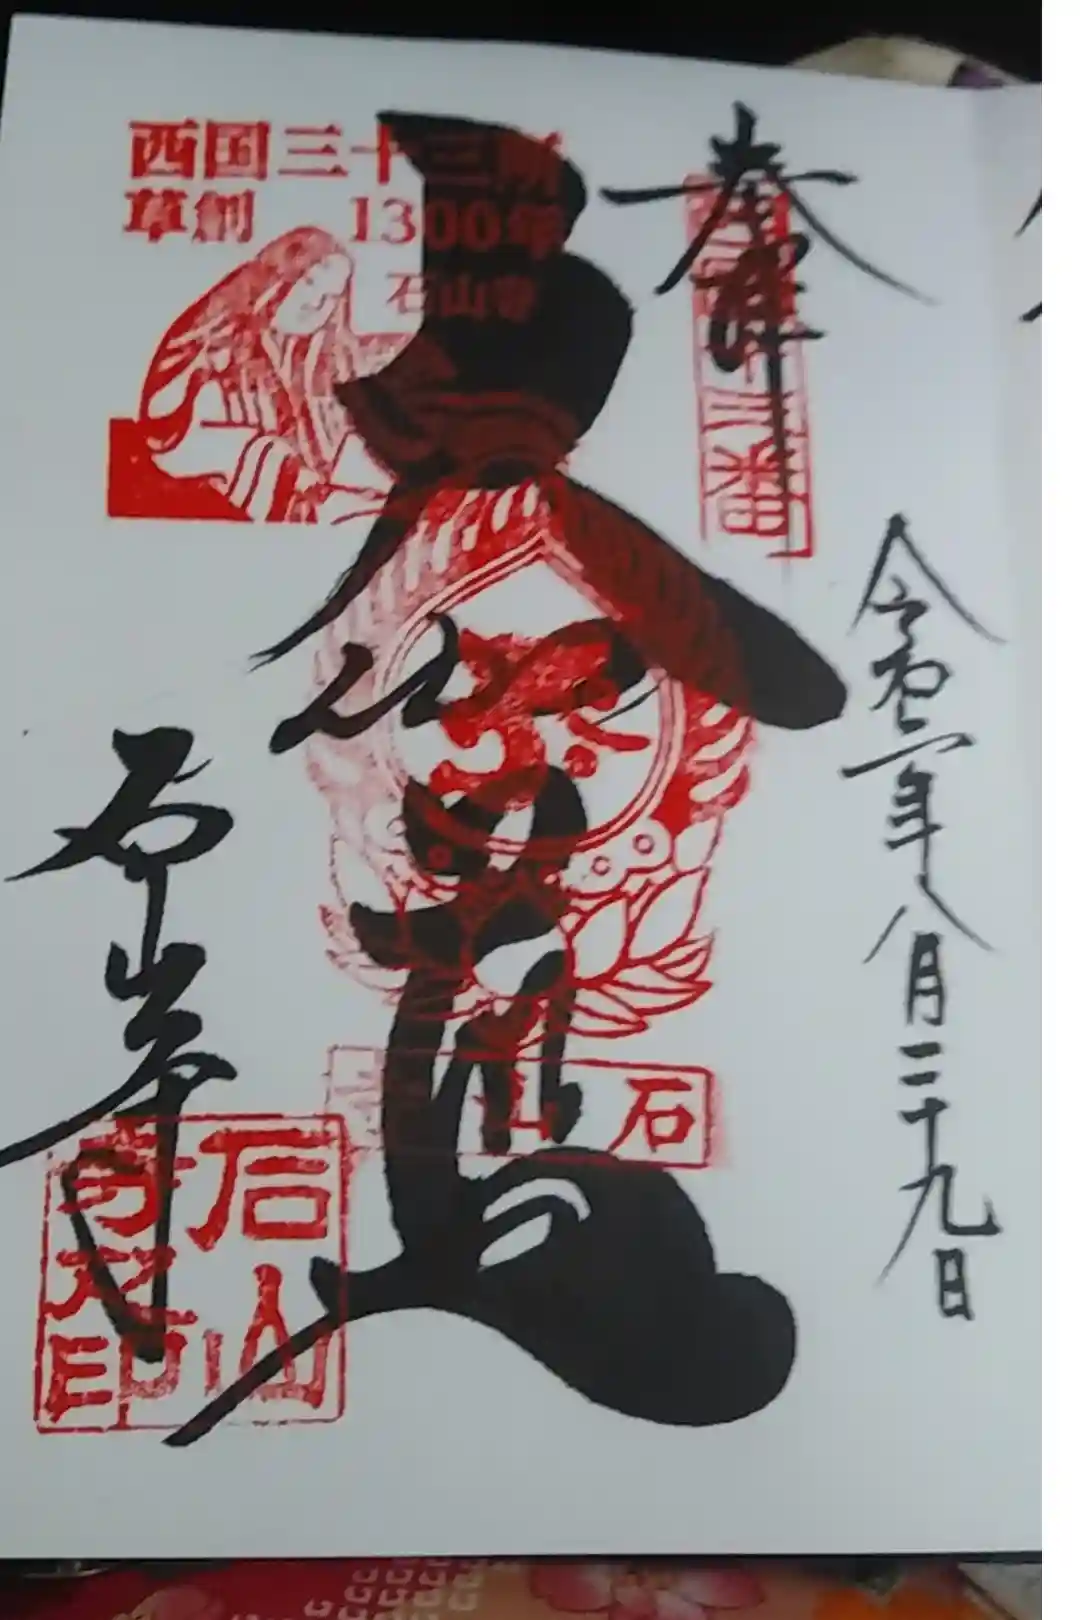 奉拝
第十三番
令和二年八月二十九日
大伽藍
石山寺
西国三十三所
草創 1300年
石山寺
石山寺
石山